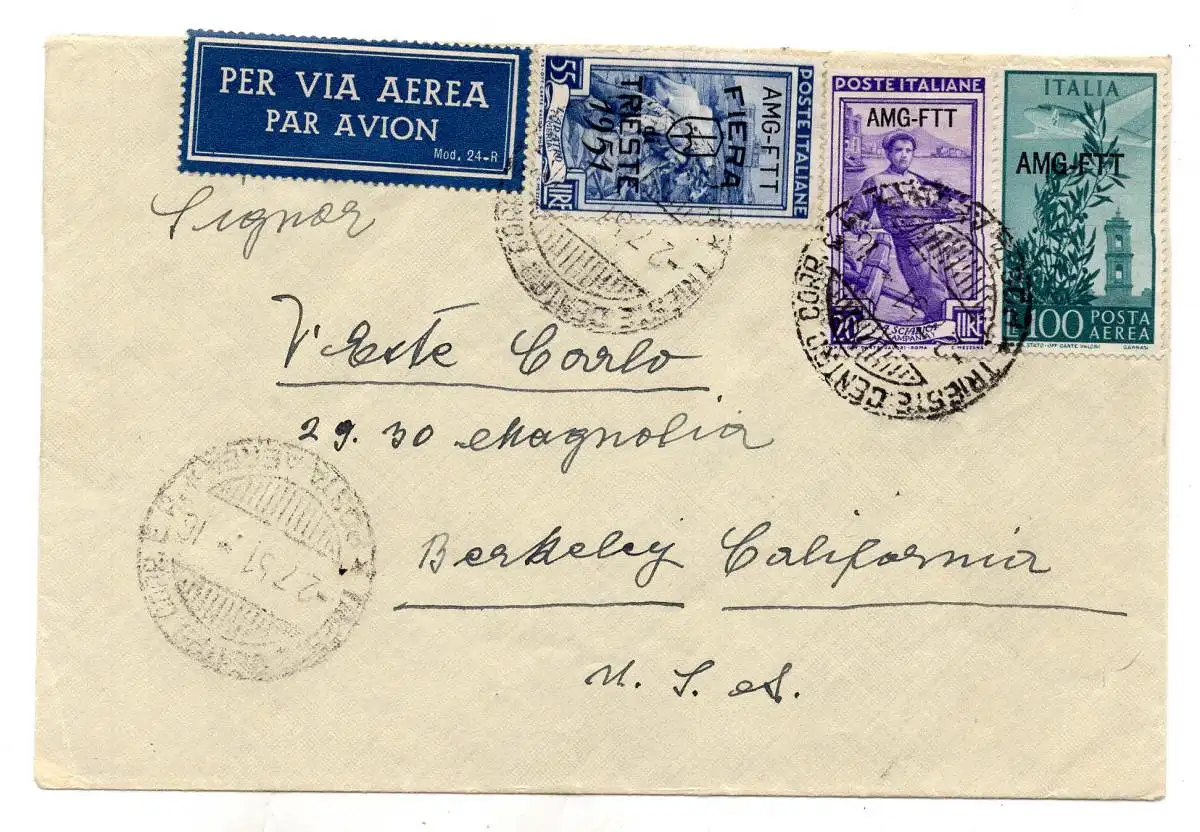 PER VIA AEREA
PAR AVION
Mod. 24-R
POSTE ITALIANE
AMG-FTT
FIERA
di
TRIESTE
1951
55
LIRE
POSTE ITALIANE
AMG-FTT
20
LIRE
ITALIA
AMG-FTT
L.100 POSTA
AEREA
TRIESTE CENTRO CORR
-2.7.51
TRIESTE CENTRO CORR
Signor
Carlo
29.30 Magnolia
Berkeley California
U. S. A.
-2.7.51